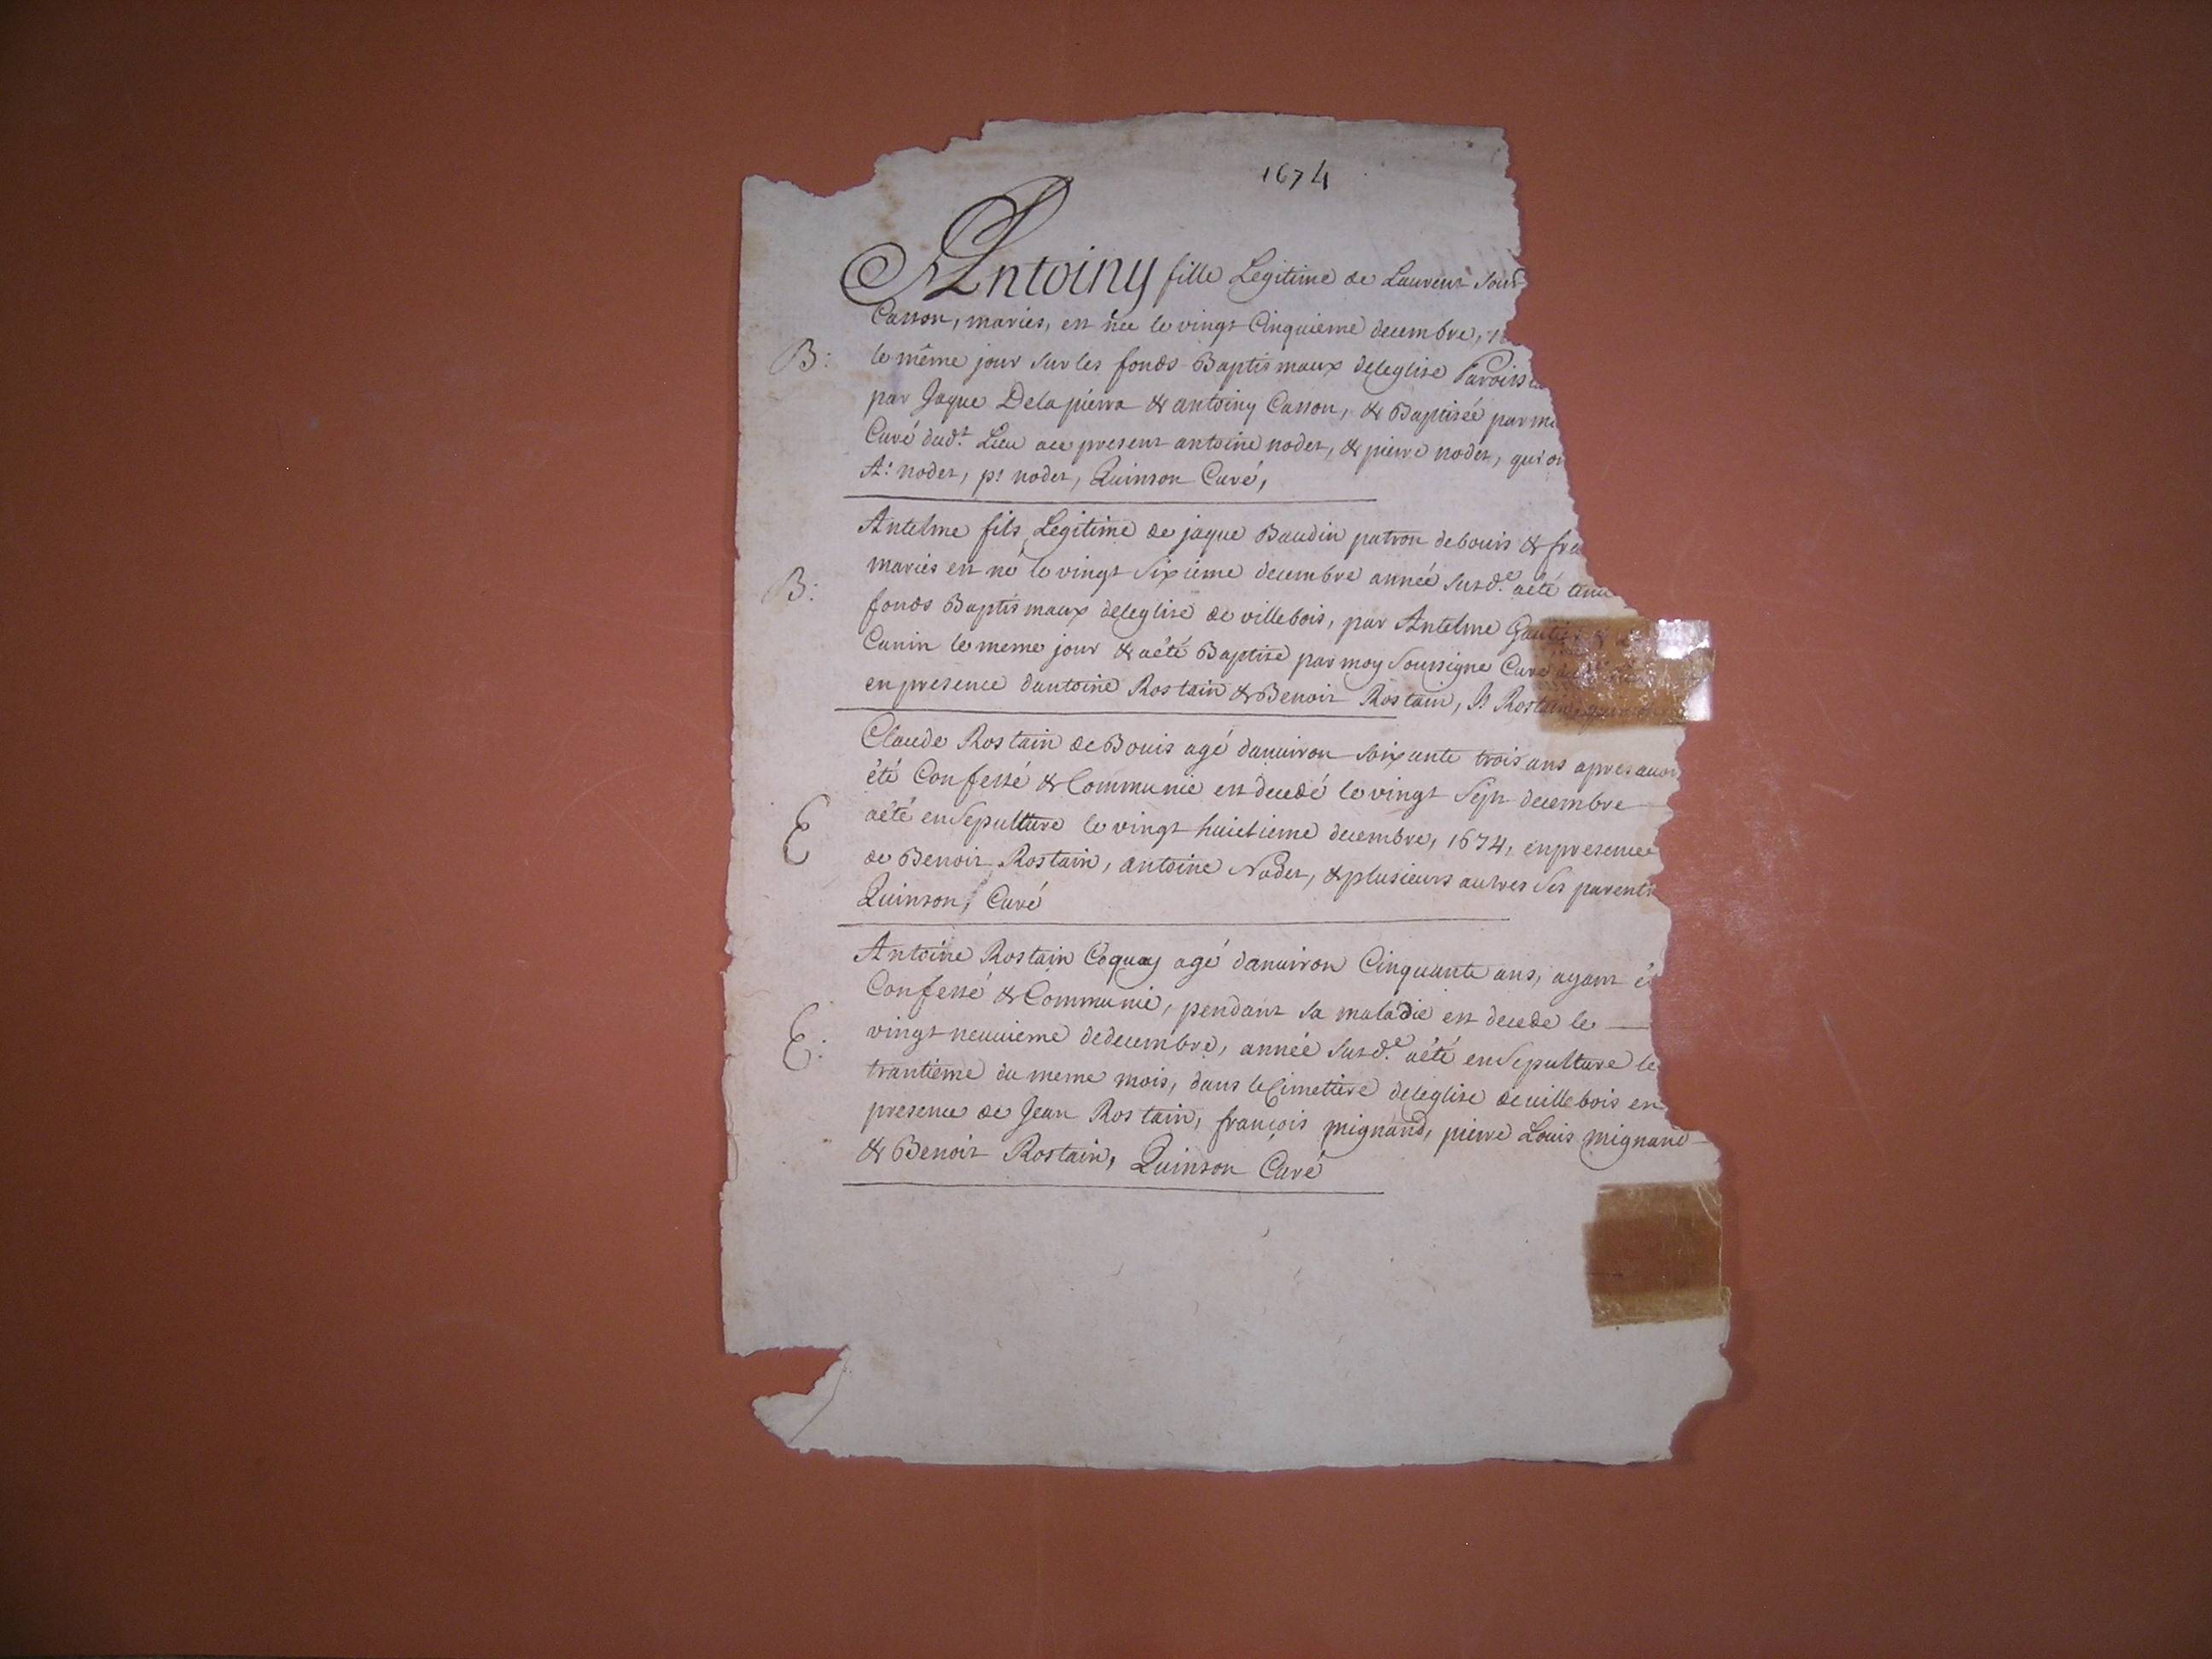 1674
Antoiny fille Legitime de Laurent
Casson, mariés, est née le vingt Cinquieme decembre,
B: le même jour sur les fonds Baptismaux deleglise Paroiss
par Jaque Delapierra & antoiny Casson, & Baptisée par
Curé dud.t Lieu ace present antoine nodet, & pierre nodet, qui
A: nodet, p: nodet, Quinson Curé,
Antelme fils Legitime de jaque Baudin patron debouis & fra
B: mariés est né le vingt Sixieme decembre année Susd.e aété tenu
fonds Baptismaux deleglise de villebois, par Antelme Gautier &
Canin le meme jour & aété Baptisé par moy Soussigne Curé
enpresence dantoine Rostain & Benoit Rostain, Rostain,
Claude Rostain de Bouis agé danuiron soixante trois ans apres auoir
été Confessé & Communie est decedé le vingt Sept decembre
E aété enSepulturé le vingt huictieme decembre, 1674, enpresence
de Benoit Rostain, antoine Nodet, & plusieurs autres Ses parents
Quinson, Curé
Antoine Rostain Coquaz agé danuiron Cinquante ans, ayant é
Confessé & Communié, pendant sa maladie est decede le
E: vingt neuuieme dedecembre, année Susd.e aété enSepulturé le
trantieme du meme mois, dans leCimetiere deleglise deuillebois en
presence de Jean Rostain, françois mignand, pierre Louis mignand
& Benoit Rostain, Quinson Curé